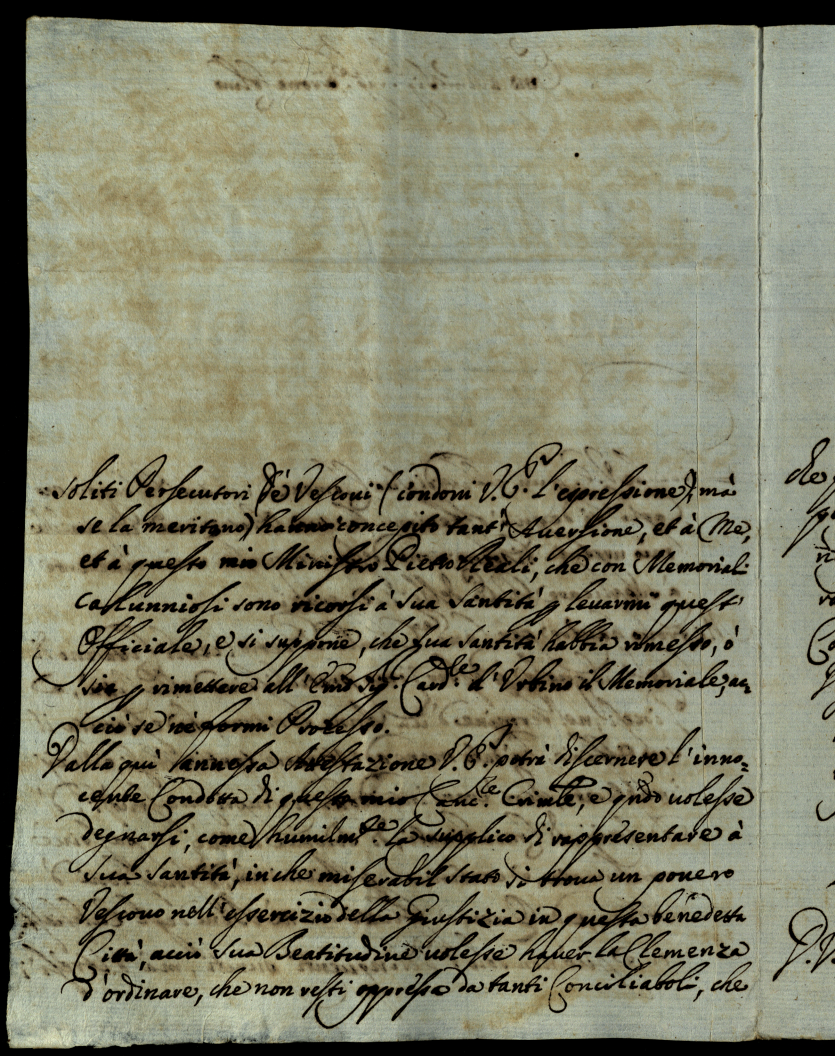 soliti Persecutori de' Vescovi (condoni V. E. l'espressione, mà
se la meritano) hanno concepito tant'Aversione, et à Me,
et à questo mio Ministro Pietro Reali, che con Memoriali
Calunniosi sono ricorsi à Sua Santità p levarmi quest'
Officiale, e si suppone, che Sua Santità habbia rimesso, ò
sia p rimettere all'Emo Sig.r Card.le d'Urbino il Memoriale, ac=
ciò se ne formi Processo.
Dalla quì annessa Attestazione V. E. potrà discernere l'inno=
cente Condotta di questo mio Canc.re Crimle, e qndo volesse
degnarsi, come humilm.te la supplico di rappresentare à
Sua Santità, in che miserabil stato si trova un povero
Vescovo nell'essercizio della Giustizia in questa benedetta
Città, acciò Sua Beatitudine volesse haver la Clemenza
d'ordinare, che non resti oppressa da tanti Conciliaboli, che